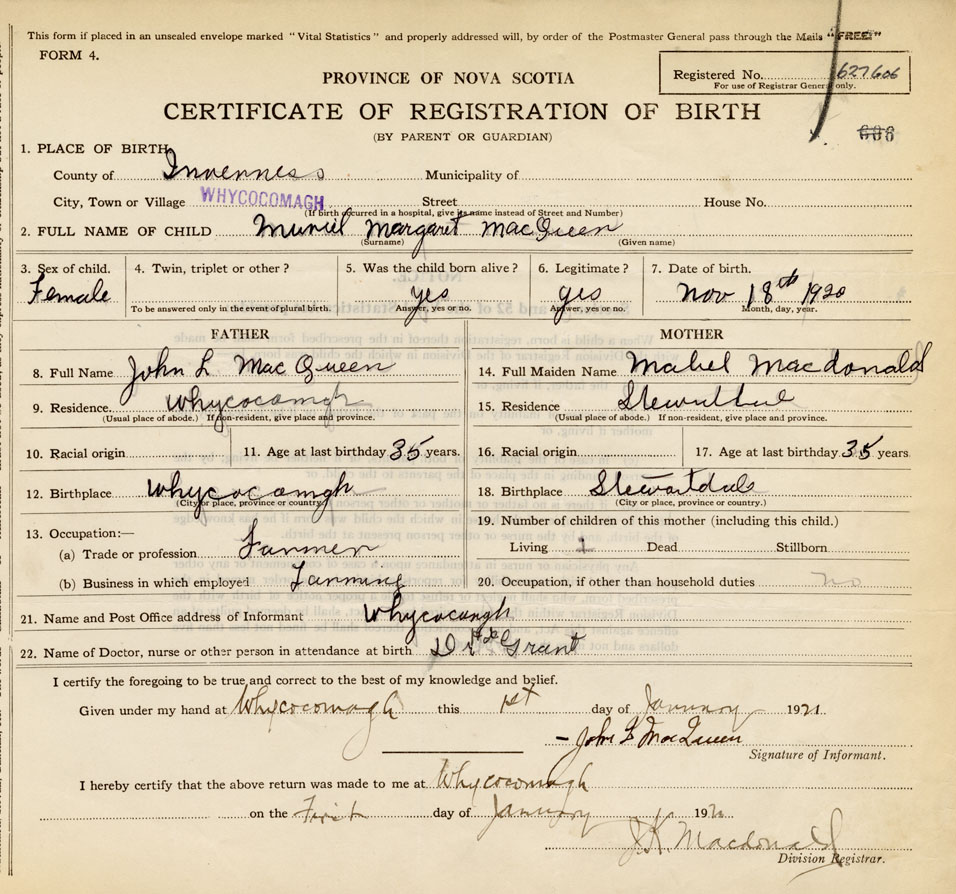 This form if placed in an unsealed envelope marked "Vital Statistics" and properly addressed will, by order of the Postmaster General pass through the Mails "FREE"
FORM 4.
PROVINCE OF NOVA SCOTIA
Registered No. 627606
For use of Registrar General only.
CERTIFICATE OF REGISTRATION OF BIRTH
(BY PARENT OR GUARDIAN)
606
1. PLACE OF BIRTH
County of Inverness Municipality of
City, Town or Village WHYCOCOMAGH Street House No.
(If birth occurred in a hospital, give its name instead of Street and Number)
2. FULL NAME OF CHILD Muriel Margaret MacQueen
(Surname) (Given name)
3. Sex of child. 4. Twin, triplet or other? 5. Was the child born alive? 6. Legitimate? 7. Date of birth.
Female yes yes Nov 18th 1920
To be answered only in the event of plural birth. Answer, yes or no. Answer, yes or no. Month, day, year.
FATHER MOTHER
8. Full Name John L MacQueen 14. Full Maiden Name Mabel Macdonald
9. Residence Whycocamgh 15. Residence
(Usual place of abode.) If non-resident, give place and province. (Usual place of abode.) If non-resident, give place and province.
10. Racial origin 11. Age at last birthday 35 years. 16. Racial origin 17. Age at last birthday 35 years
12. Birthplace Whycocamgh 18. Birthplace Stewartdale
(City or place, province or country.) (City or place, province or country.)
13. Occupation:— 19. Number of children of this mother (including this child.)
(a) Trade or profession Farmer Living 1 Dead Stillborn
(b) Business in which employed Farming 20. Occupation, if other than household duties no
21. Name and Post Office address of Informant Whycocamgh
22. Name of Doctor, nurse or other person in attendance at birth Dr Grant
I certify the foregoing to be true and correct to the best of my knowledge and belief.
Given under my hand at Whycocomagh this 1st day of January 1921
John L MacQueen
Signature of Informant.
I hereby certify that the above return was made to me at Whycocomagh
on the First day of January 1921
J.K. Macdonald
Division Registrar.